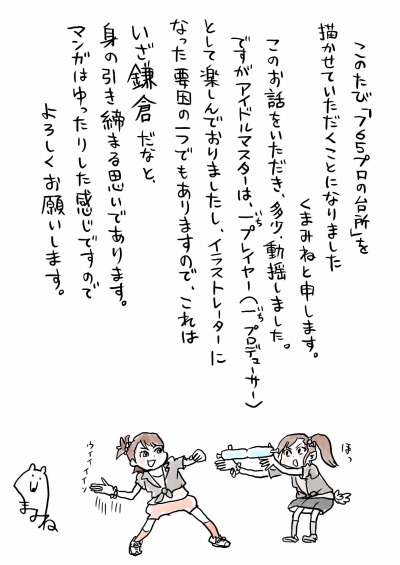 このたび「765プロの台所」を
描かせていただくことになりました
くまみねと申します。
このお話をいただき、多少、動揺しました。
ですがアイドルマスターは、一プレイヤー(一プロデューサー)
いち
いち
として楽しんでおりましたし、イラストレーターに
なった要因の一つでもありますので、これは
いざ鎌倉だなと、
身の引き締まる思いであります。
マンガはゆったりした感じですので
よろしくお願いします。
ほっ
ウィィィン
まみね